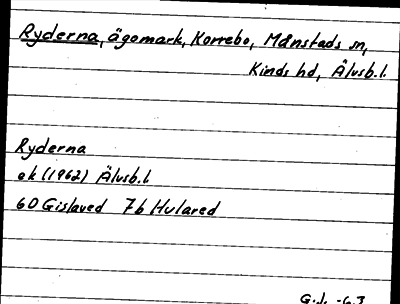 Ryderna, ägomark, Korrebo, Månstads sn,
Kinds hd, Älvsb.l.
Ryderna
ek (1962) Älvsb.l
60 Gislaved 7b Hulared